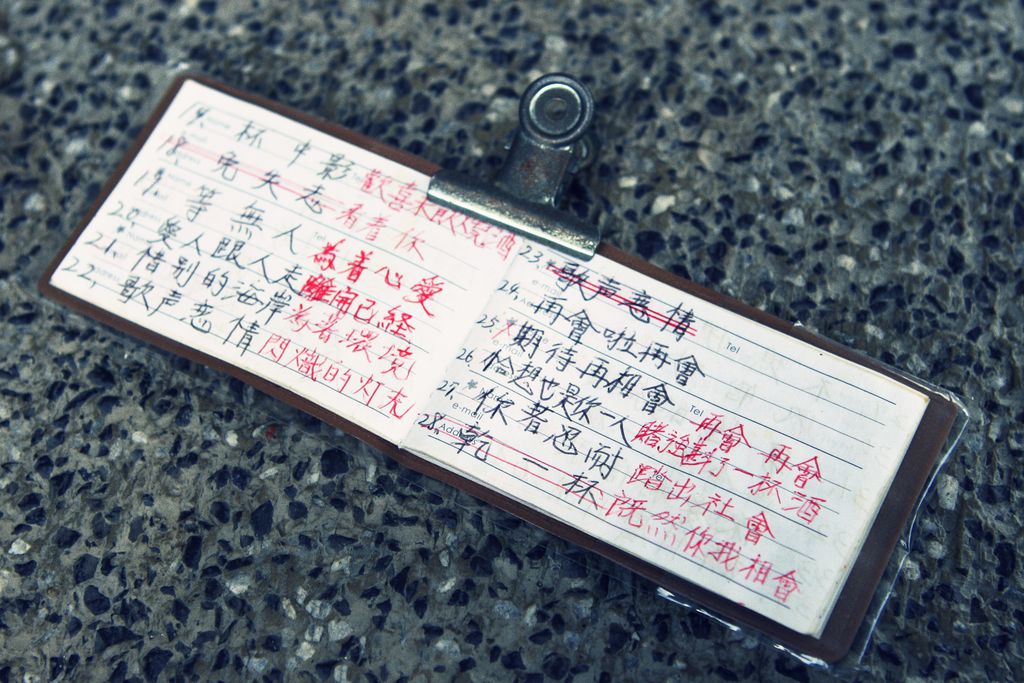 17. 杯中影 歡喜來飲燒酒
18. 免失志 看着你
19. 等無人 為着心愛
20. 愛人跟人走 離開已經
21. 惜別的海岸 為著環境
22. 歌声恋情 閃爍的灯光
23. 歌声恋情
24. 再會啦再會
25. 期待再相會 再會 再會
26. 惦想也是你一人
27. 你着忍耐 踏出社會
28. 乾一杯 既然你我相會
Name
Tel
Address
e-mail